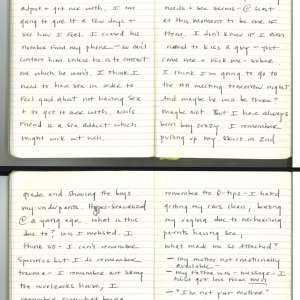 adjust + get over with. I am
going to give it a few days +
see how I feel. I erased his
number from my phone - so can't
contact him unless he is to contact
me which he won't. I think I
need to have sex in order to
feel good about not having sex
+ to get it over with. Will's
friend is a sex addict which
might work out well.
needs + sex seems - @ least
at this moment to be one of
them. I don't know if I even
need to kiss a guy - just
come over + fuck me - sober
I think I'm going to go to
the AA meeting tomorrow night
and maybe he will be there?
maybe not. But I have always
been boy crazy. I remember
pulling up my skirts in 2nd
grade and showing the boys
my underpants. Hyper-sexualized
@ a young age. What is this
due to? Was I molested? I
think so - I can't remember
specifics but I do remember
trauma - I remember not being
the
house, I
remember
being
remember the Q-tips - I hated
getting my ears clean, hating
my vagina due to
parents having sex,
what made me so attached?
- my mother not emotionally
available -
- my father was -
- I
love from men
- "I'm not your mother"